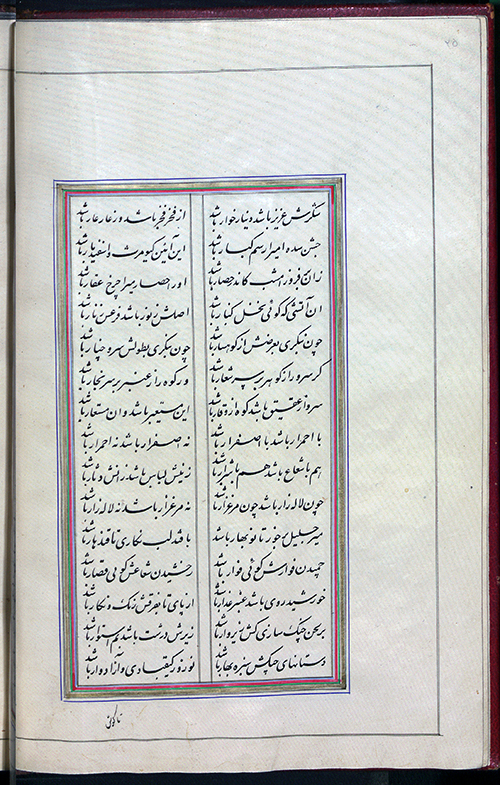 شکرش عزیز باشد دینار خوار باشد از فخر فخر باشد وز عار عار باشد
جشن سده امیرا رسم کبار باشد این آئین کیومرث و اسفندیار باشد
زان برفروز امشب کاندر حصار باشد او را حصار میرا چرخ عقار باشد
آن آتشی که گوئی نخل ببار باشد اصلش ز نور باشد فرعش ز نار باشد
چون بنگری بعرضش از کوهسار باشد چون بنگری بطولش سرو چنار باشد
گر سرو را ز گوهر بر سر شعار باشد ور کوه را ز عنبر بر سر بخار باشد
سرو از عقیق باشد کوه از وقار باشد این مستعیر باشد وان مستعار باشد
با احمرار باشد با اصفرار باشد نه اصفرار باشد نه احمرار باشد
هم با شعاع باشد هم با شرار باشد زینش لباس باشد زانش دثار باشد
چون لاله زار باشد چون مرغزار باشد نه مرغزار باشد نه لاله زار باشد
میر جلیل برخور تا نوبهار باشد با قند لب نگاری تا قندهار باشد
جنبیدن فوارش گوئی فوار باشد رخشیدن شعاعش گوئی قصار باشد
خورشید روی باشد عنبر عذار باشد از پای تا بفرقش رنگ و نگار باشد
بر چنگ سازی کش زیر و زار باشد زیرش درشت باشد بم استوار باشد
دستانهای چنگش سبزه بهار باشد نوروز کیقبادی و آزادوار باشد